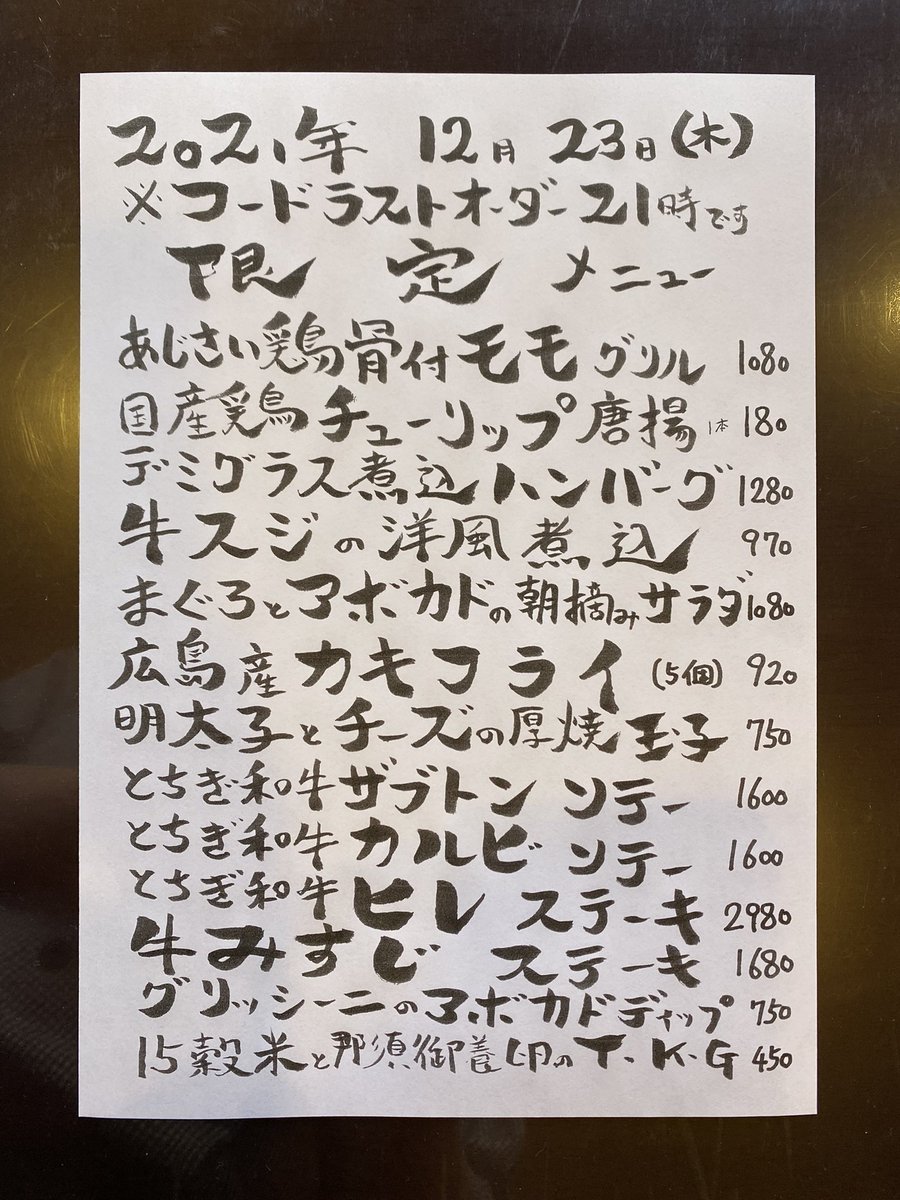 2021年 12月 23日(木)
※フードラストオーダー21時です
限 定 メニュー
あじさい鶏骨付モモグリル 1080
国産鶏チューリップ唐揚 1本 180
デミグラス煮込ハンバーグ 1280
牛スジの洋風煮込 970
まぐろとアボカドの朝摘みサラダ 1080
広島産カキフライ (5個) 920
明太子とチーズの厚焼玉子 750
とちぎ和牛ザブトン ソテー 1600
とちぎ和牛カルビ ソテー 1600
とちぎ和牛ヒレ ステーキ 2980
牛みすじ ステーキ 1680
グリッシーニのアボカドディップ 750
15穀米と那須御養卵のT.K.G 450